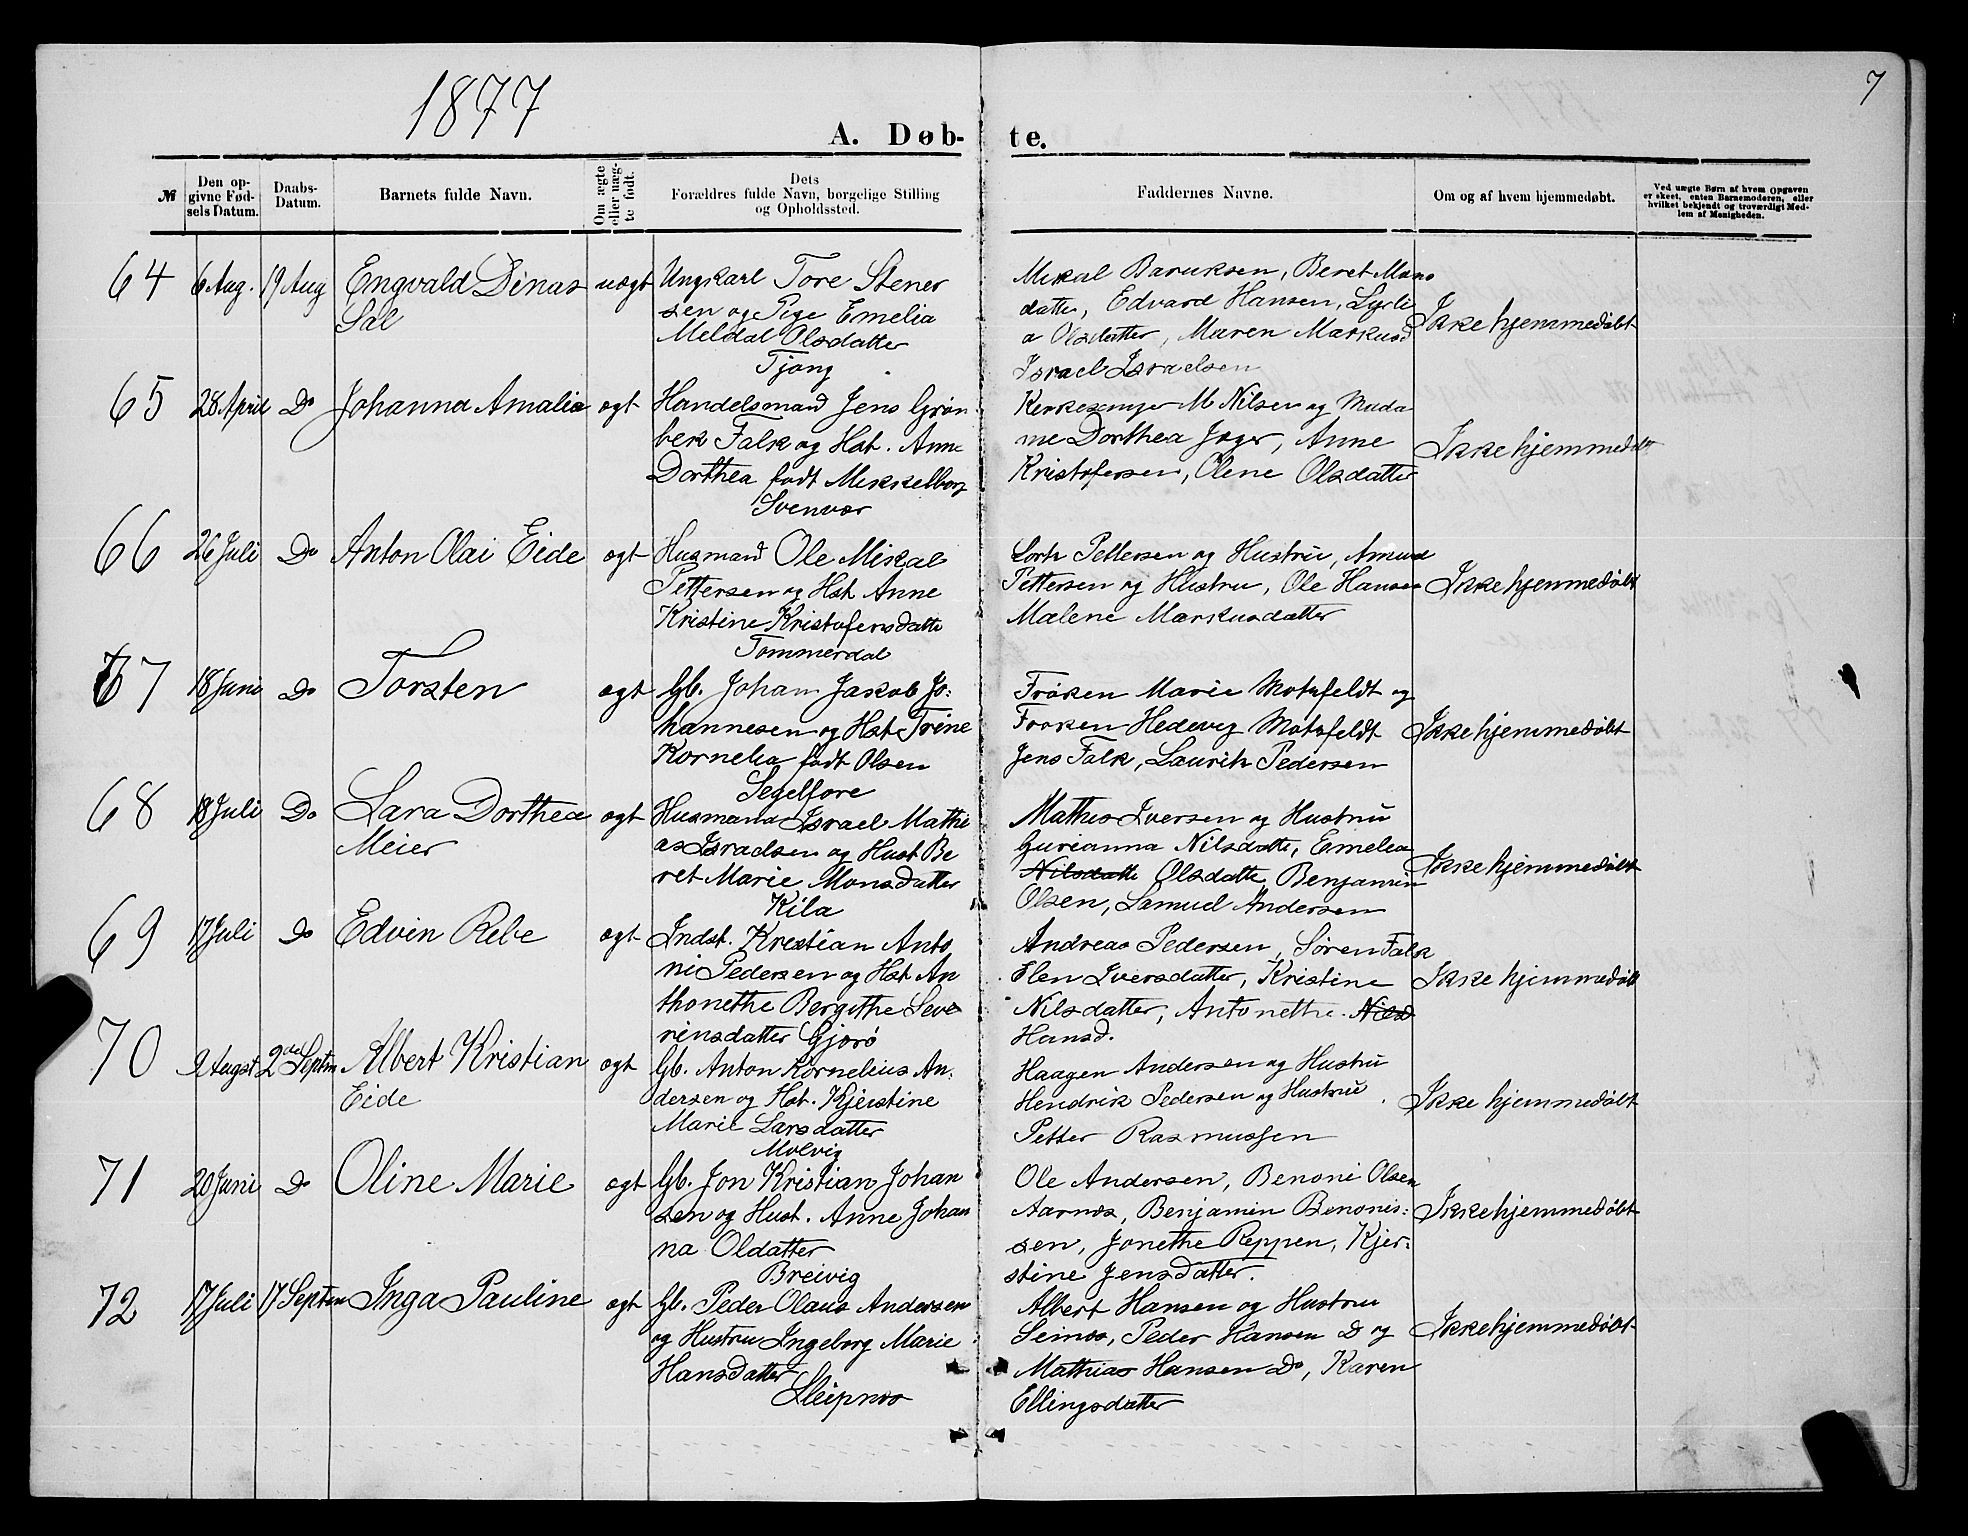 1877
7
A. Døb- te.
№
Den opgivne Fødsels Datum.
Daabs-Datum.
Barnets fulde Navn.
Om ægte eller uægte født.
Dets Forældres fulde Navn, borgelige Stilling og Opholdssted.
Faddernes Navne.
Om og af hvem hjemmedøbt.
Ved uægte Børn af hvem Opgaven er skeet, enten Barnemoderen, eller hvilket bekjendt og troværdigt Medlem af Menigheden.
64 6 Aug. 19 Aug Engvald Dinas uægt Ungkarl Tore Stener
Sal
sen og Pige Emelia
Meldal Olsdatter
Tjong
Mikal Baruksen, Beret Mons
datte, Edvard Hansen,
a Olsdatter, Maren Markusd
Israel Israelsen
Ikke hjemmedøbt
65 28 April Do Johanna Amalia ægt Handelsmand Jens Grøn
bek Falk og Hst. Anne
Dorthea født Mikkelborg
Svenvær
Kirkesanger M Nilsen og Mada
me Dorthea Jæger, Anne
Kristofersen, Olene Olsdatter
Ikke hjemmedøbt
66 26 Juli Do Anton Olai Eide ægt Husmand Ole Mikal
Pettersen og Hst Anne
Kristine Kristofersdatte
Tommerdal
Pettersen og Hustru, Amund
Pettersen og Hustru, Ole Hansen
Malene Markusdatter
Ikke hjemmedøbt
67 18 Juni Do Torsten ægt Gb. Johan Jakob Jo-
hannesen og Hst Trine
Kornelia født Olsen
Segelfore
Frøken Marie Motzfeldt og
Frøken Hedevig Motzfeldt
Jens Falk, Laurits Pedersen
Ikke hjemmedøbt
68 18 Juli Do Lara Dorthea ægt Husmand Israel Mathi
Meier
as Israelsen og Hust Be
ret Marie Monsdatter
Kila
Mathis Iversen og Hustru
Gurianna Nilsdatte, Emelea
Nilsdatte Olsdatte, Benjamin
Olsen, Samuel Andersen
Ikke hjemmedøbt
69 17 Juli Do Edvin Rebe ægt Indst. Kristian Anto
ni Pedersen og Hst An
thonethe Bergithe Seve
rinsdatter Gjorø
Andreas Pedersen, Søren Falk
Elen Iversdatter, Kristine
Nilsdatter, Antonethe Nilsd
Hansd.
Ikke hjemmedøbt
70 9 Augst 2den Septm Albert Kristian ægt Gb. Anton Kornelius An-
Eide
dersen og Hst. Kjerstine
Marie Larsdatter
Molvig
Haagen Andersen og Hustru
Hendrik Pedersen og Hustrue
Petter Rasmussen
Ikke hjemmedøbt
71 20 Juni Do Oline Marie ægt Gb. Jon Kristian Johan
sen og Hust. Anne Johan
na Oldatter
Breivig
Ole Andersen, Benoni Olsen
Aarnes, Benjamin Benonis-
sen, Jonethe Reppen, Kjer-
stine Jensdatter.
Ikke hjemmedøbt
72 17 Juli 17 Septem Inga Pauline ægt Gb. Peder Olaus Andersen
og Hustru Ingeborg Marie
Hansdatter
Sleipnæs
Albert Hansen og Hustru
Seines, Peder Hansen D og
Mathias Hansen Do, Karen
Ellingsdatter
Ikke hjemmedøbt